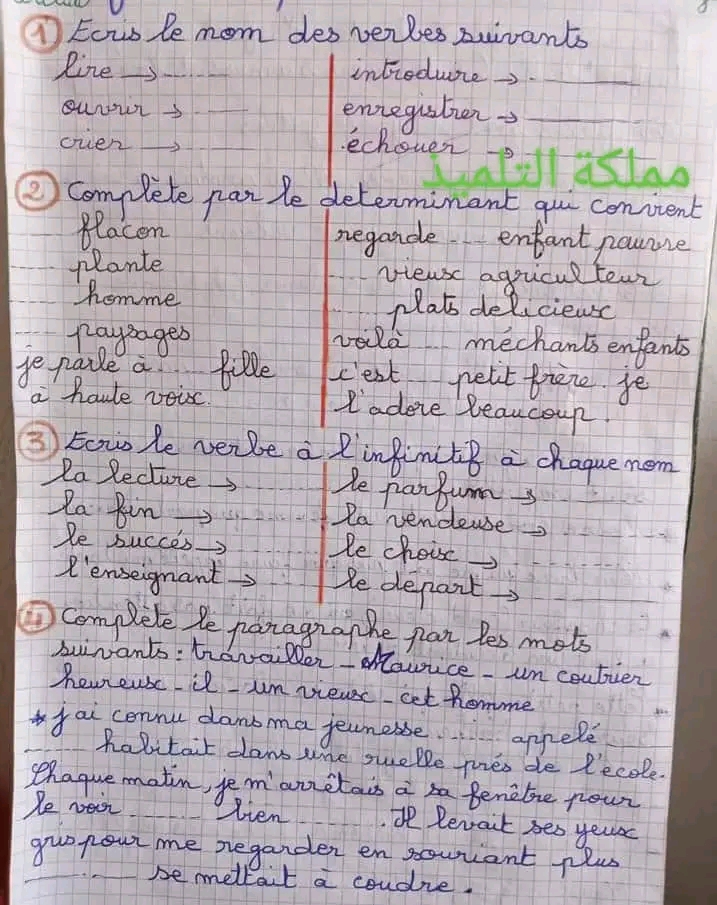 1 Ecris le nom des verbes suivants
lire → ...... introduire → . ______
ouvrir → ____ enregistrer → ______
crier → ____ échouer →
مملكة التلميذ
2 Complète par le determinant qui convient
flacon regarde ... enfant pauvre
... plante ... vieux agriculteur
... homme ... plats delicieux
... paysages voilà ... méchants enfants
je parle à ... fille c'est ... petit frère. je
à haute voix. l'adore beaucoup.
3 Ecris le verbe à l'infinitif à chaque nom
la lecture → ...... le parfum → ......
la fin → ...... la vendeuse → ......
le succés → ...... le choix → ......
l'enseignant → ...... le départ → ______
4 Complète le paragraphe par les mots
suivants : travailler - Maurice - un coutrier
heureux - il - un vieux - cet homme
* j'ai connu dans ma jeunesse ...... appelé ____
...... habitait dans une ruelle prés de l'école.
Chaque matin, je m'arrêtais à sa fenêtre pour
le voir ...... bien ...... . Il levait ses yeux
gris pour me regarder en souriant plus
______ se mettait à coudre.